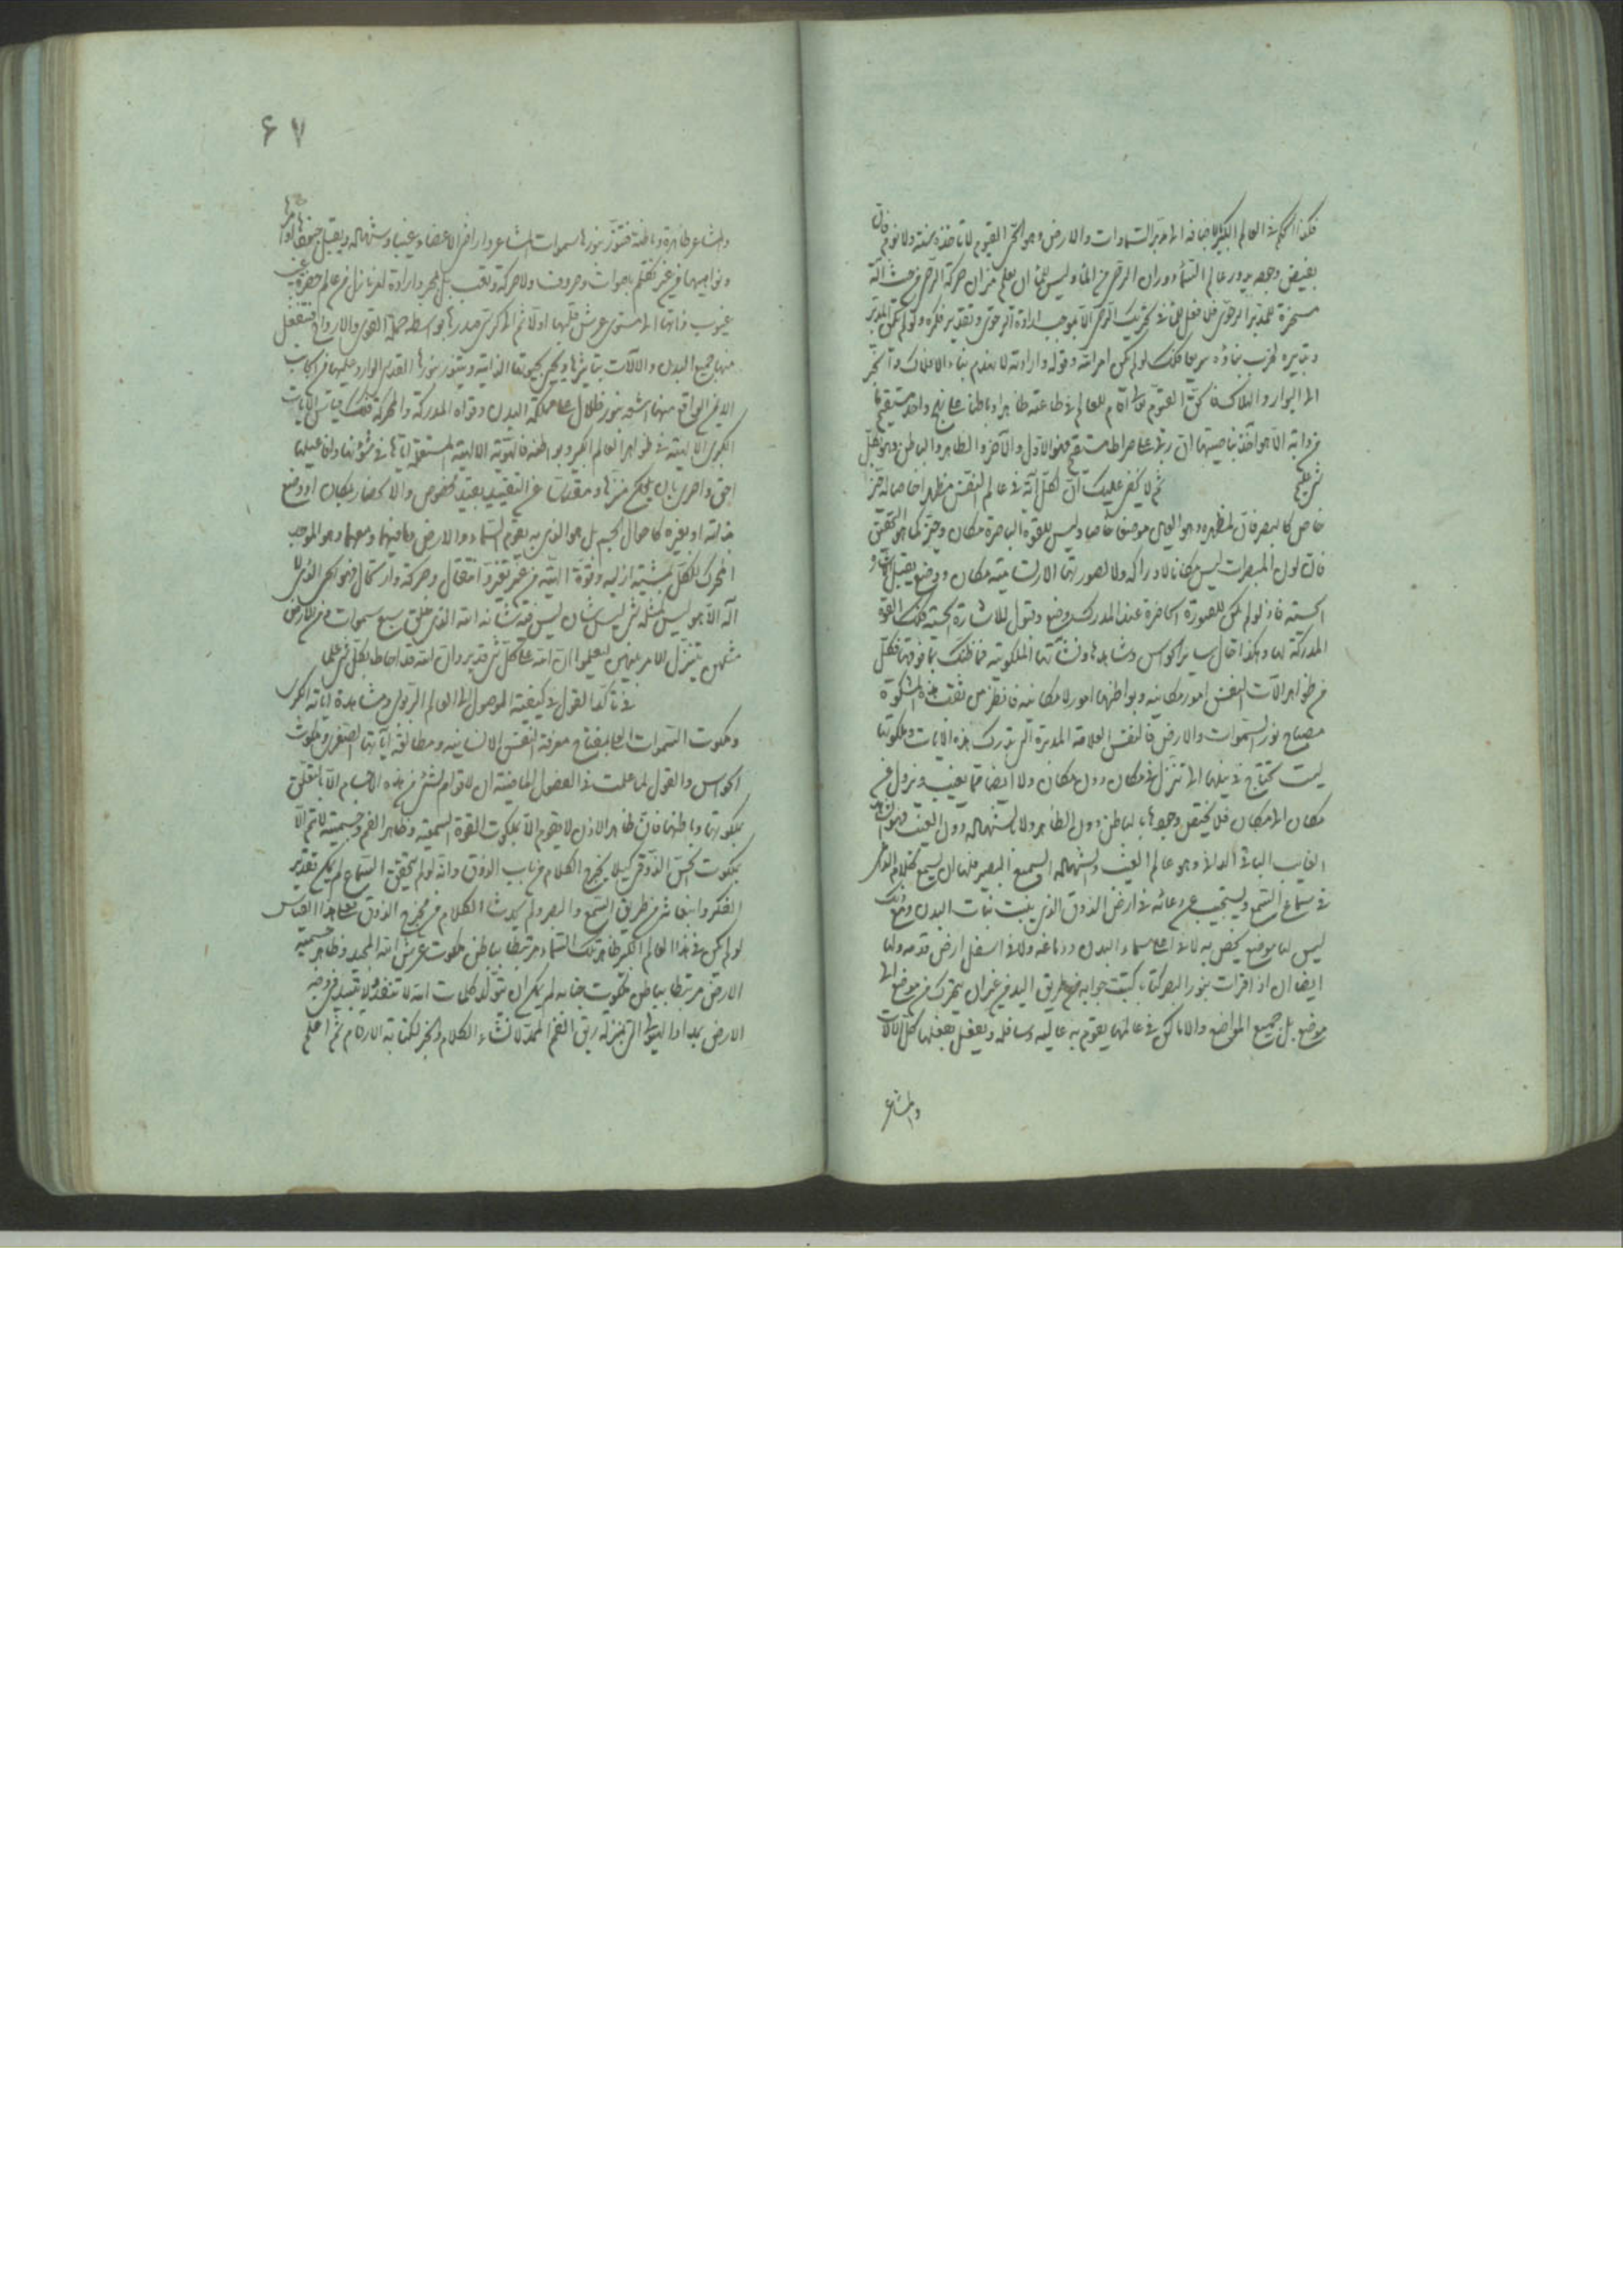 فكذا الحكم في العالم الكبير بالاضافة الى مدبر السماوات والارض وهو الحي القيوم لا تاخذه سنة ولا نوم فان
بفيض وجهه يدور عالم السماء دوران الرحى من الماء وليس للماء ان يعلم ميزان حركة الرحى من حيث انه
مسخرة للمدبر الرحوي فلا فعل للماء في تحريك الرحى الا بموجب ارادة الرحوي وتقدير فكره ولو لم يكن المدبر
وتدبيره لخرب بناؤه سريعا فكذلك لو لم يكن امر الله وقوله وارادته لانهدم بناء الافلاك وانجر
الى البوار والهلاك
من دابة الا هو آخذ بناصيتها ان ربي على صراط مستقيم فهو الاول والآخر والظاهر والباطن وهو بكل
شئ عليم ثم لا يخفى عليك ان لكل آلة في عالم النفس مظهرا خاصا له حيز
خاص كالبصر فان لمظهره وهو العين موضعا خاصا وليس للقوة الباصرة مكان وحيز كما هو التحقيق
فان لون المبصرات ليس مكانا لادراكه ولا لصورتها الارتسامية مكان ووضع يقبل الاشارة
الحسية فاذ لو لم يكن للصورة الحاضرة عند المدرك وضع وقبول للاشارة الحسية فكذلك القوة
المدركة لها وهكذا حال ساير الحواس ومشاعرها ونشأتها الملكوتية فما ظنك بما فوقها فكل
من ظواهر آلات النفس امور مكانية وبواطنها امور لا مكانية فانظر من ثقب هذه المشكوة
مصباح نور السموات والارض فالنفس العلامة المدبرة التي تدرك هذه الآيات وملكوتها
ليست تحتاج في نيلها الى تنزل في مكان دون مكان ولا ايضا مما يغيب ونزول عن
مكان الى مكان فلا يختص وجودها بالباطن دون الظاهر ولا بالشهادة دون الغيب فهو الشاهد
الغايب البادي الداني وهو عالم الغيب والشهادة السميع البصير فلها ان يسمع كلام الذاكر
في سماع السمع وليستجيب دعائه في ارض الذوق الذي ينبت نبات البدن ومع ذلك
ليس لها موضع يخص به لا في اعلى سماء البدن ودماغه ولا في اسفل ارض قدمه ولها
ايضا ان اذا قرات بنور البصر كتابا كتبت جوابه من طريق اليد من غير ان يتحرك من موضع الى
موضع بل جميع المواضع والاماكن في عالمها يقوم به عاليه وسافله ويفعل بفعلها كل الآلات
والمشاعر
۶۷
والمشاعر ظاهرة وباطنة فتنور بنورها سموات المشاعر واراضي الاعضاء غيبا وشهادة ويقبل جميعها اوامرها
ونواهيها من غير تكلم باصوات وحروف ولا حركة وتعب بل بمجرد ارادة لها نازل من عالم حضرة غيب
غيوب ذاتها الى مستوى عرش قلبها اولا ثم الى كرسي صدرها بواسطة حملة القوى والارواح فينفعل
منها جميع البدن والآلات بتاثيرها ويحيى بحيوتها الذاتية ويتنور بنورها القدسي الوارد عليها من الجانب
الايمن الواقع منها اشعة نور ظلال على مملكة البدن وقواه المدركة والمحركة فكذلك قياس الآيات
الكبرى الالهية في ظواهر العالم الكبير وبواطنه فالهوية الالهية المستعملة اياها في شؤونها وافاعيلها
احق واحرى بان يكون منزها ومقدسا عن التقييد بقيد مخصوص والانحصار بمكان او وضع
بذاته او بغيره كما حال الجسم بل هو الذي به يقوم السماء والارض وما فيهما ومعهما وهو الموجب
المحرك للكل بمشيته ازلية وقوة الهية من غير تغير وانتقال وحركة وارتحال فهو الحي الذي لا
اله الا هو ليس كمثله شئ ليس شان ليس فيه شانه الله الذي خلق سبع سموات ومن الارض
مثلهن يتنزل الامر بينهن لتعلموا ان الله على كل شئ قدير وان الله قد احاط بكل شئ علما
في تاكد القول في كيفية الوصول الى العالم الربوبي ومشاهدة آياته الكبرى
وملكوت السموات العلى بمفتاح معرفة النفس الانسانية ومطالعة آياتها الصغرى وملكوت
الحواس والقول لما علمت في الفصول الماضية ان لا قوام لشئ من هذه الاجسام الا بالتعلق
بملكوتها وباطنها فان ظاهر الاذن لا يقوم الا بملكوت القوة السمعية وظاهر الفم وجسميته لا تتم الا
بملكوت الحس الذوقي كيلا يخرج الكلام من باب الذوق وانه لو لم يتحقق السماع لم يكن تقدير
الفكر وانبعاثه من طريق السمع والبصر ولم يحدث الكلام من مخرج الذوق فعلى هذا القياس
لو لم يكن في هذا العالم الكبير ظاهر تلك السماء مرتبطا بباطن ملكوت عرش الله المجيد وظاهر جسمية
الارض مرتبطا بباطن ملكوت جنابه لم يمكن ان يتولد كلمات الله لا تنفد ولا تبيد في وجه
الارض بمداد الهيولى التي بمنزلة ريق الفم الممد لانشاء الكلام والحبر لكتابة الارقام ثم اعلم